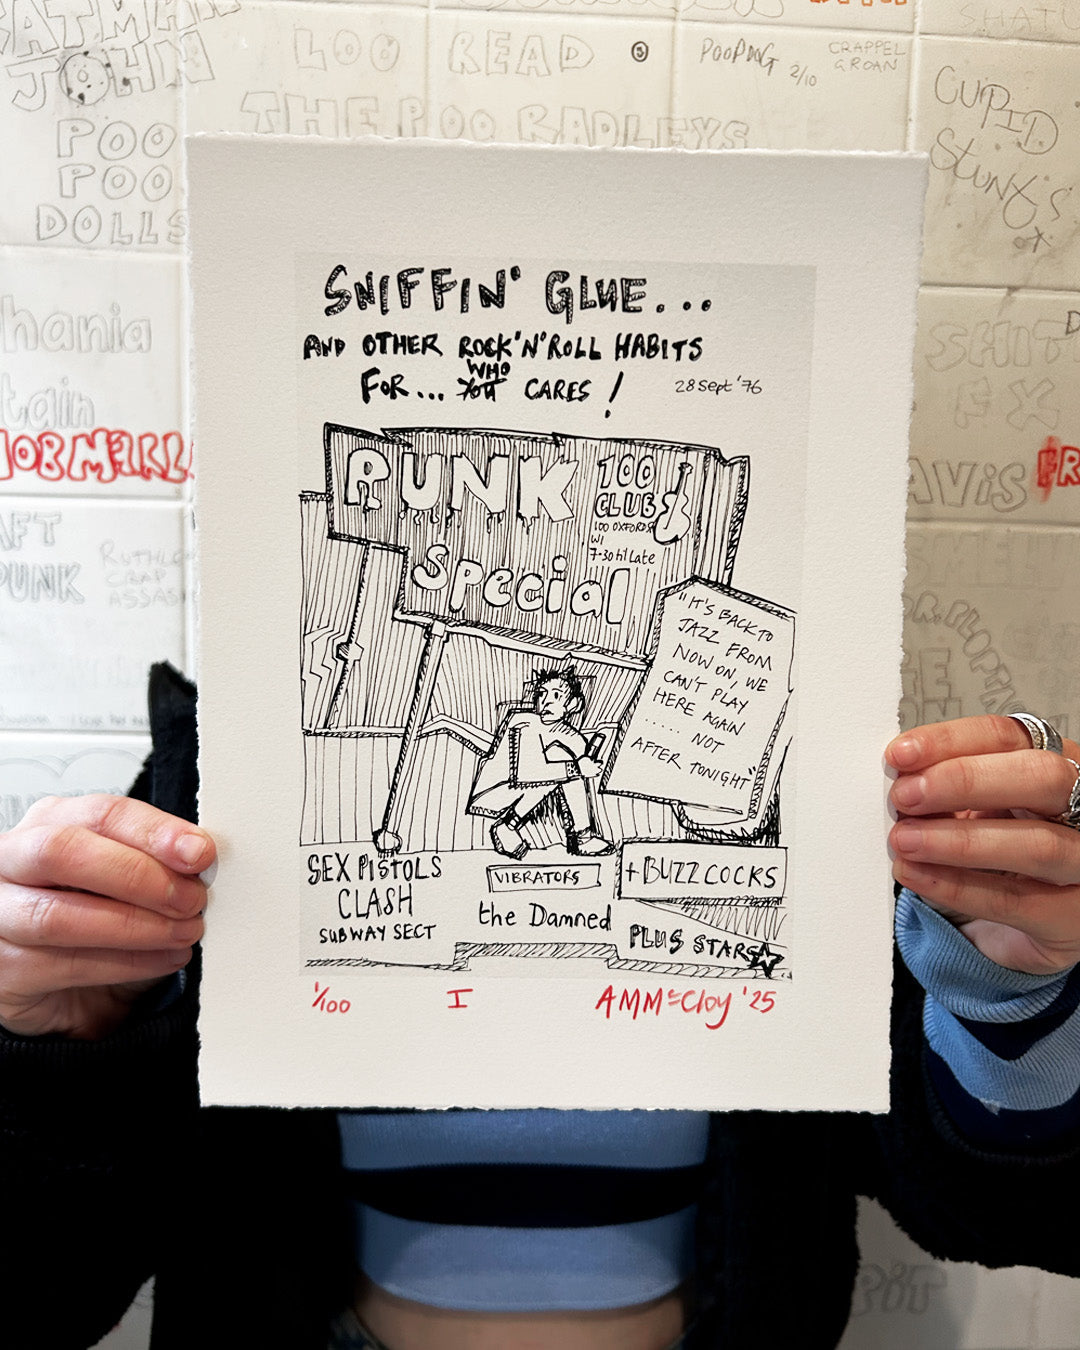 JOHN
LOU READ
POOPDOG
2/10
CRAPPEL
GROAN
THE POO RADLEYS
CUPID
STUNTS
POO
POO
DOLLS
SNIFFIN' GLUE...
AND OTHER ROCK'N'ROLL HABITS
FOR... YOU WHO CARES!
28 Sept '76
PUNK
100
CLUB
100 OXFORD S
W1
7-30 til Late
Special
"IT'S BACK TO
JAZZ FROM
NOW ON, WE
CAN'T PLAY
HERE AGAIN
.... NOT
AFTER TONIGHT"
SEX PISTOLS
CLASH
SUBWAY SECT
VIBRATORS
the Damned
+ BUZZCOCKS
PLUS STARS
1/100
I
AMMcCloy '25
hania
tain
AFT
PUNK
RUTHL
CRAP
ASSAS
SHIT
FX
AVIS